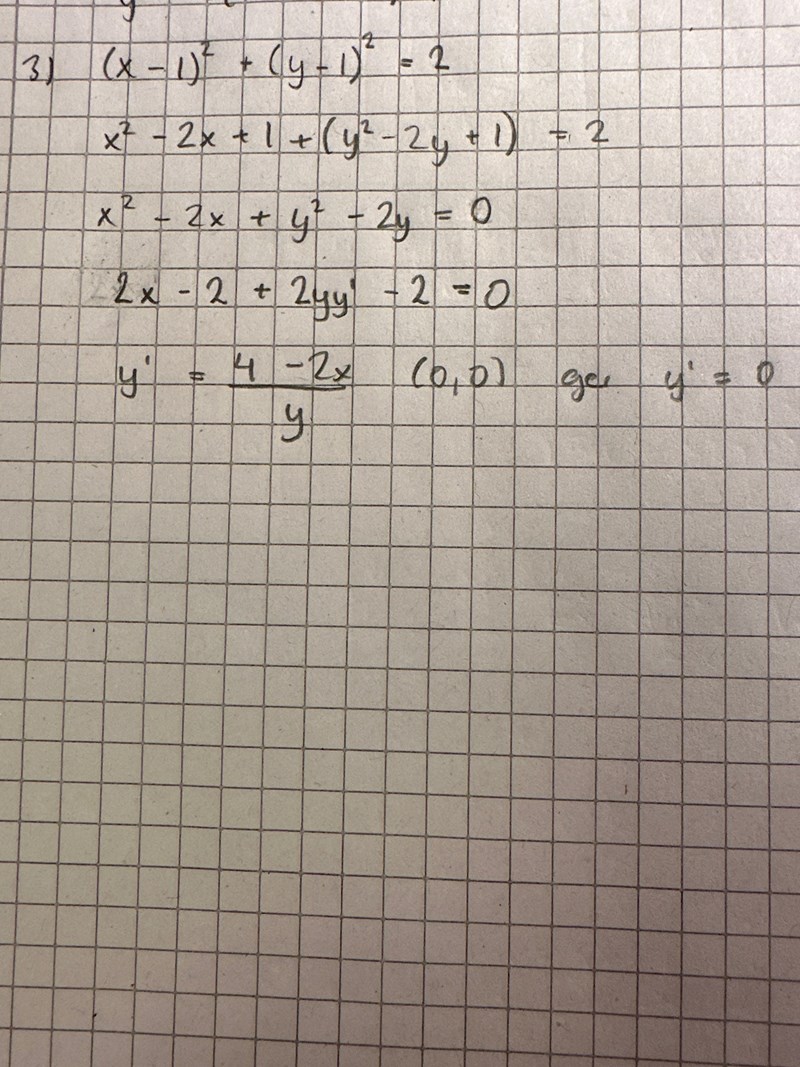 3) (x - 1)² + (y - 1)² = 2
x² - 2x + 1 + (y² - 2y + 1) = 2
x² - 2x + y² - 2y = 0
2x - 2 + 2yy' - 2 = 0
y' = \frac{4 - 2x}{y} (0,0) ger y' = 0